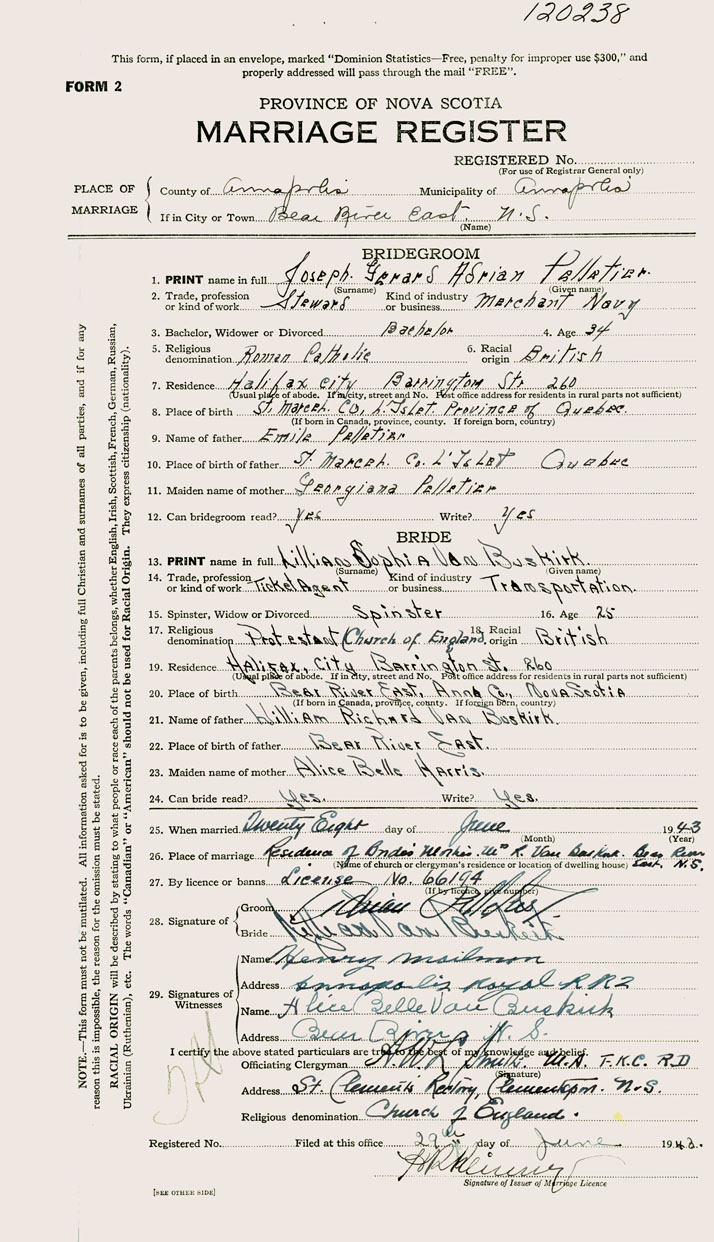 120238
This form, if placed in an envelope, marked "Dominion Statistics—Free, penalty for improper use $300," and
properly addressed will pass through the mail "FREE".
FORM 2
PROVINCE OF NOVA SCOTIA
MARRIAGE REGISTER
REGISTERED No.
(For use of Registrar General only)
PLACE OF MARRIAGE
County of Annapolis Municipality of Annapolis
If in City or Town Bear River East. N.S.
(Name)
BRIDEGROOM
1. PRINT name in full Joseph Gerard Adrian Pelletier.
(Surname) (Given name)
2. Trade, profession or kind of work Steward Kind of industry or business Merchant Navy
3. Bachelor, Widower or Divorced Bachelor 4. Age 34
5. Religious denomination Roman Catholic 6. Racial origin British
7. Residence Halifax city Barrington Str. 260
(Usual place of abode. If in city, street and No. Post office address for residents in rural parts not sufficient)
8. Place of birth St. Marcel. Co. L'Islet. Province of Quebec.
(If born in Canada, province, county. If foreign born, country)
9. Name of father Emile Pelletier
10. Place of birth of father St. Marcel. Co. L'Islet Quebec
11. Maiden name of mother Georgiana Pelletier
12. Can bridegroom read? yes Write? yes
BRIDE
13. PRINT name in full Lillian Sophia Van Buskirk.
(Surname) (Given name)
14. Trade, profession or kind of work Ticket Agent Kind of industry or business Transportation.
15. Spinster, Widow or Divorced Spinster 16. Age 25
17. Religious denomination Protestant (Church of England 18. Racial origin British
19. Residence Halifax, City Barrington St. 260
(Usual place of abode. If in city, street and No. Post office address for residents in rural parts not sufficient)
20. Place of birth Bear River East, Anna Co., Nova Scotia
(If born in Canada, province, county. If foreign born, country)
21. Name of father William Richard Van Buskirk.
22. Place of birth of father Bear River East.
23. Maiden name of mother Alice Belle Harris.
24. Can bride read? Yes. Write? Yes.
25. When married Twenty Eight day of June 1943
(Month) (Year)
26. Place of marriage Residence of Brides Mother. Mrs R. Van Buskirk. Bear River East. N.S.
(Name of church or clergyman's residence or location of dwelling house)
27. By licence or banns License No. 66194
(If by licence, give number)
28. Signature of
Groom
Bride Lillian Van Buskirk
29. Signatures of Witnesses
Name Henry Mailman
Address Annapolis Royal RR2
Name Alice Belle Van Buskirk
Address Bear River, N.S.
I certify the above stated particulars are true to the best of my knowledge and belief.
Officiating Clergyman Smith. M.A F.K.C. R.D
(Signature)
Address St. Clements Rectory, Clementsport. N.S.
Religious denomination Church of England.
Registered No. Filed at this office 29th day of June 1943.
Signature of Issuer of Marriage Licence
[SEE OTHER SIDE]
NOTE.—This form must not be mutilated. All information asked for is to be given, including full Christian and surnames of all parties, and if for any
reason this is impossible, the reason for the omission must be stated.
RACIAL ORIGIN will be described by stating to what people or race each of the parents belongs, whether English, Irish, Scottish, French, German, Russian,
Ukrainian (Ruthenian), etc. The words "Canadian" or "American" should not be used for Racial Origin. They express citizenship (nationality).